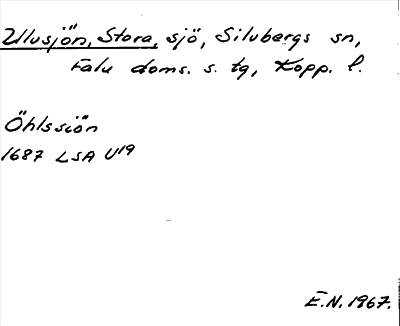 Ulvsjön, Stora, sjö, Silvbergs sn,
Falu doms. s. tg, Kopp. l.
Öhlssiön
1687 LSA U19
E.N. 1967.